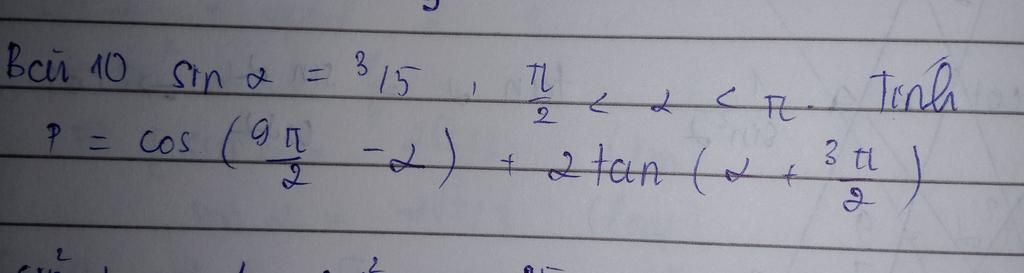 Bài 10 sin α = 3/5 , π/2 < α < π. Tính
P = cos (9π/2 - α) + 2tan (α + 3π/2)